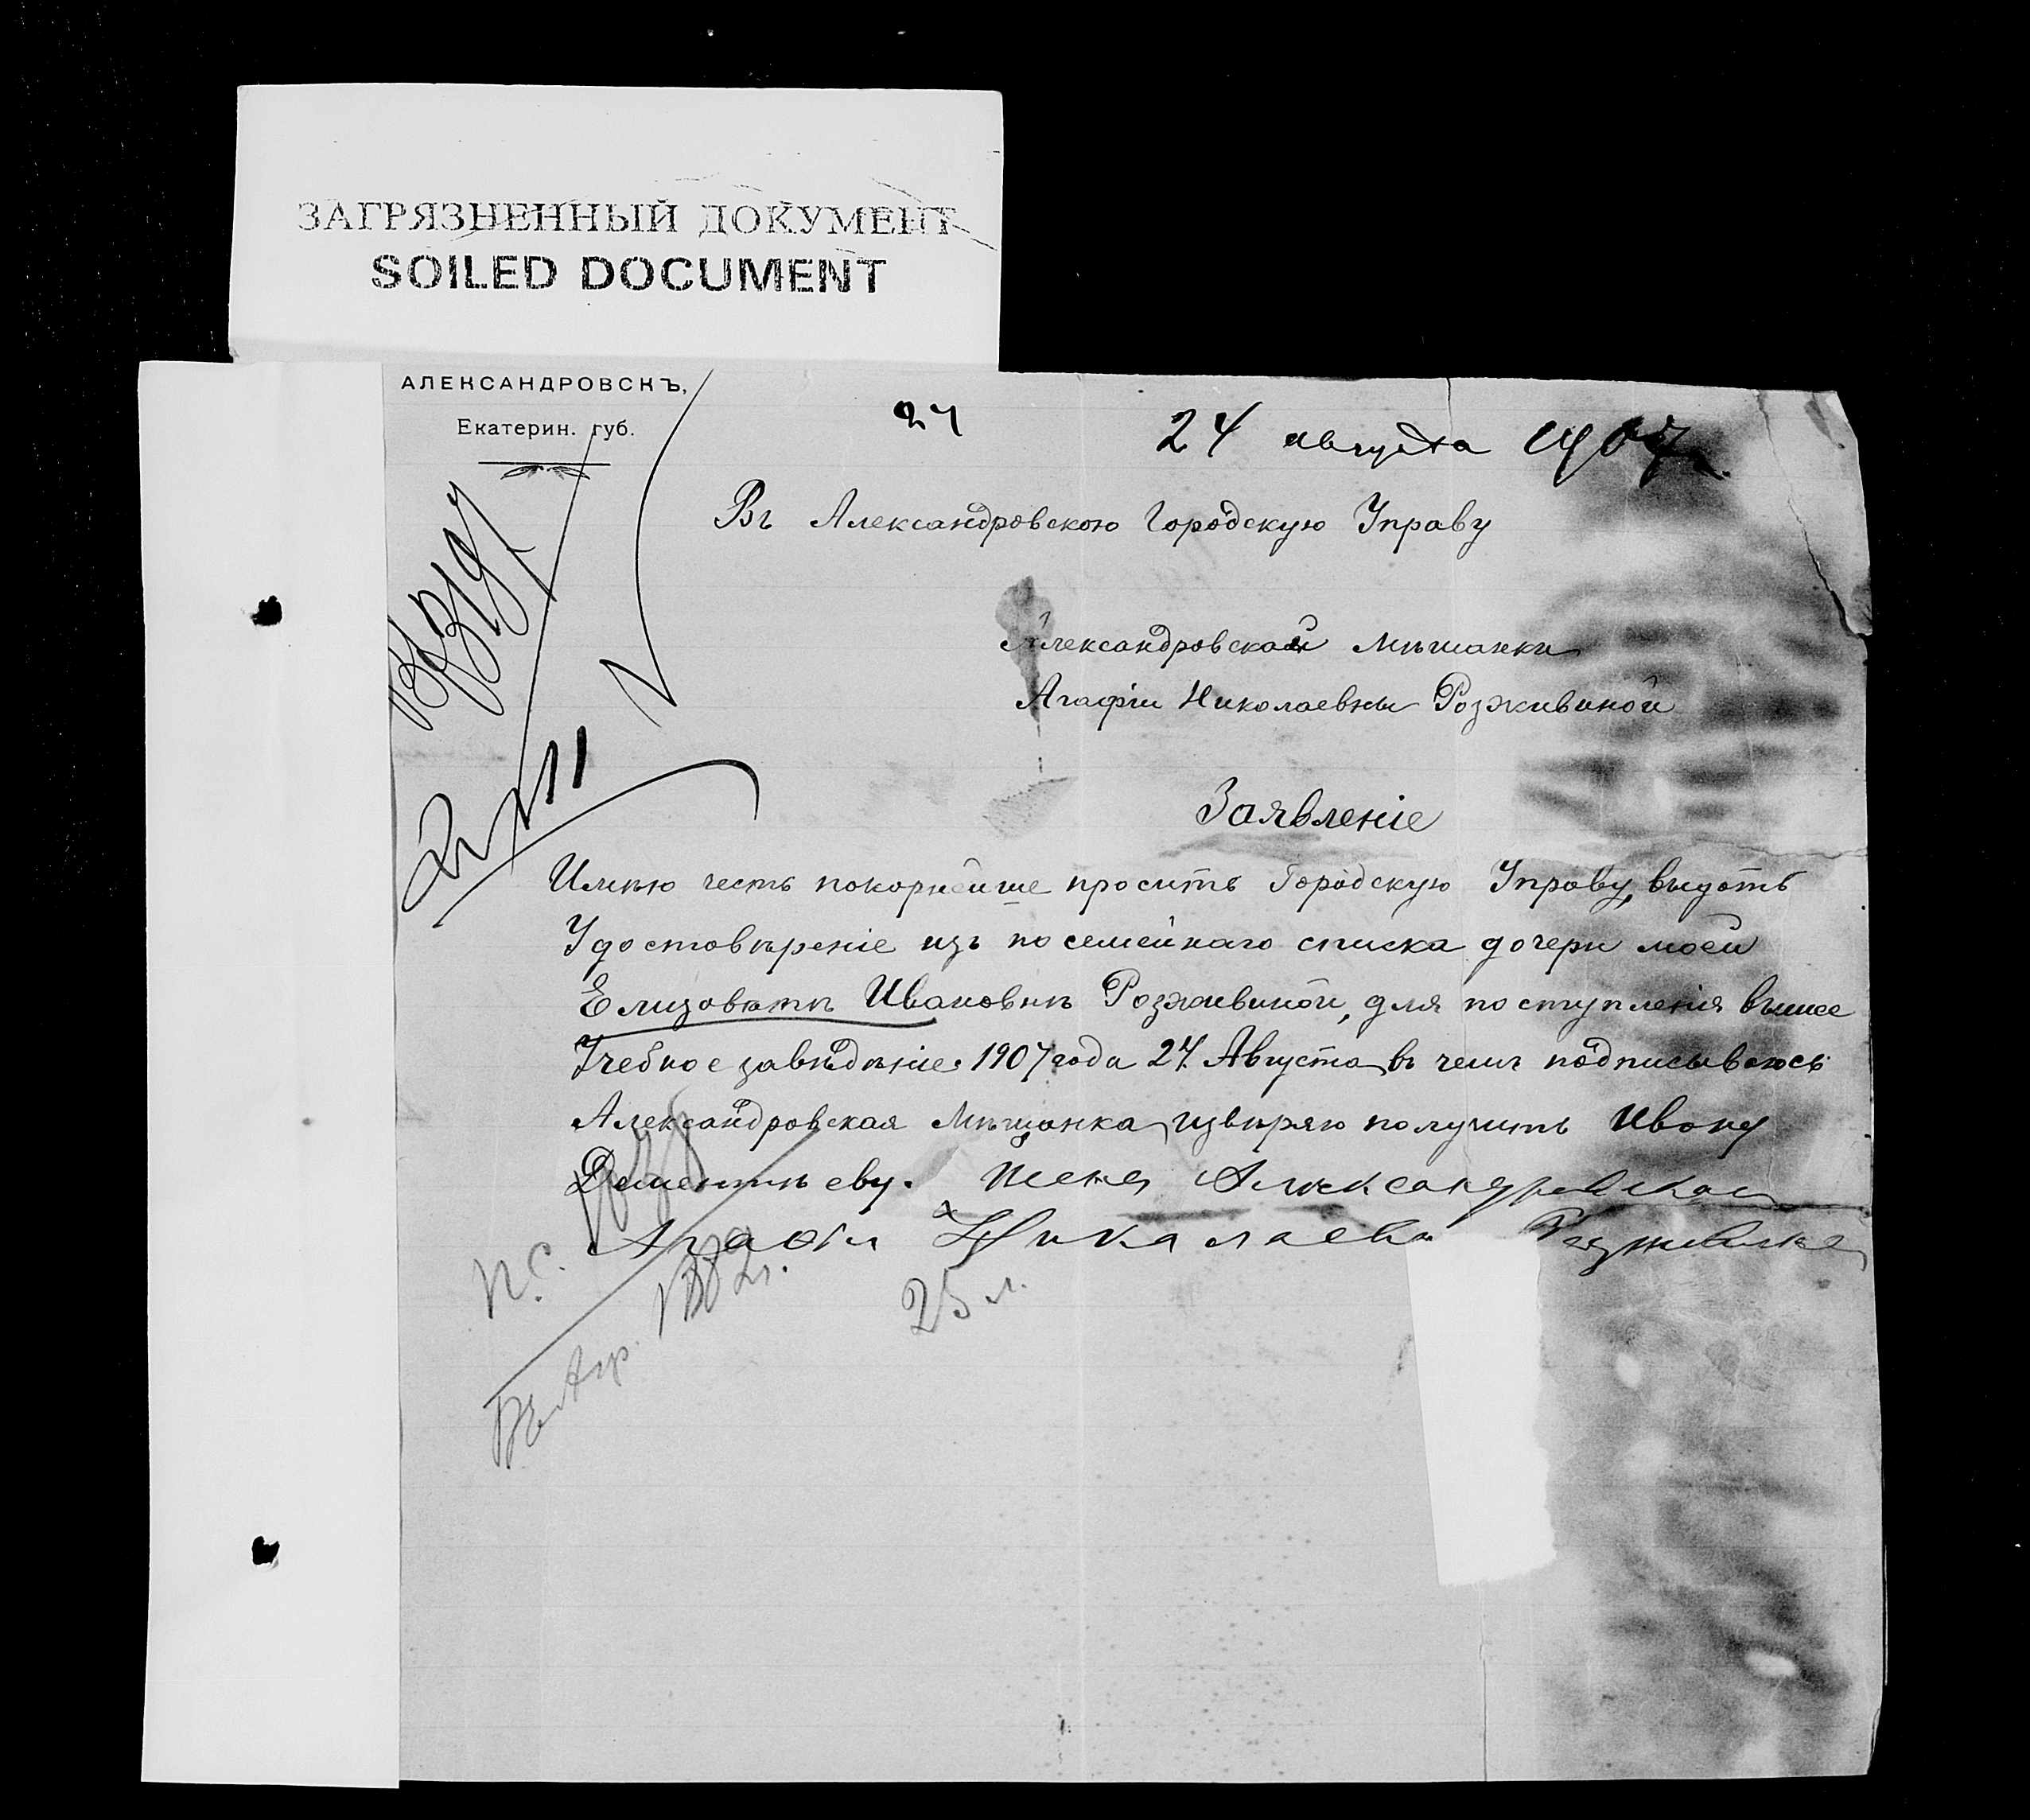 ЗАГРЯЗНЕННЫЙ ДОКУМЕНТ
SOILED DOCUMENT
АЛЕКСАНДРОВСКЪ,
Екатерин. губ.
24 24 августа 1907 г.
Въ Александровскою Городскую Управу
Александровской Мѣшанки
Агафіи Николаевны Розживиной
Заявленіе
Имѣю честь покорнейше просить Городскую Управу, выдать
Удостовѣреніе изъ посемейнаго списка дочери моей
Елизоветѣ Ивановнѣ Розживиной, для поступленія выше
Учебное завѣдѣніе. 1907 года 24 Августа, въ чемъ подписываюсь
Александровская Мѣщанка, извѣряю получить Ивону
Дементѣеву.
Агафія Никалаева
п.с.
25 л.